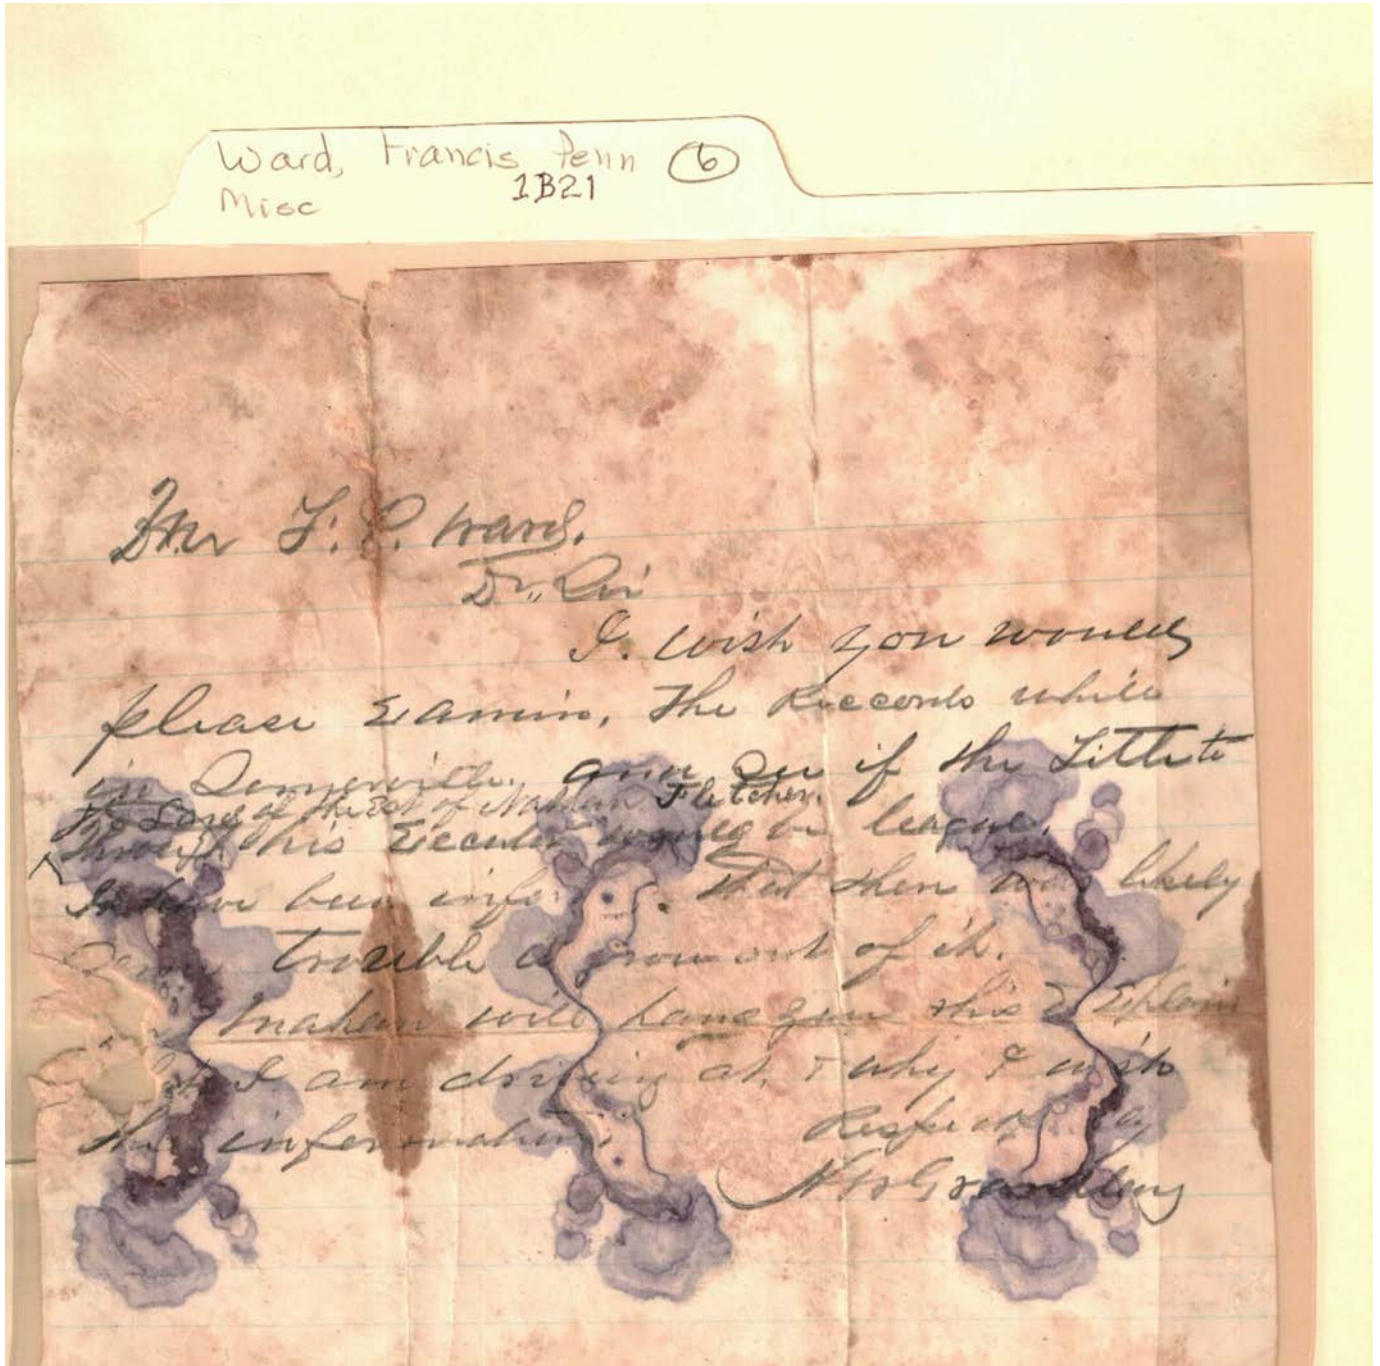 Ward, Francis Penn 6
Misc 1B21
Mr F. P. Ward.
Dr Sir
I. wish you would
please Examin, The Reccords while
in Somerville. and see if the Tittle to
the Land of the Est of Nathan Fletcher.
Through his Executor would be league.
I have been infor . That there likely
trouble grow out of it.
Mahan will hand you this & Explain
I am driving at, & why I wish
this information
Respectfully